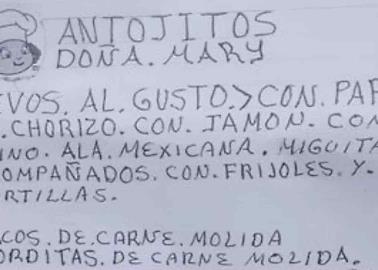 ANTOJITOS
DOÑA.MARY
VOS.AL.GUSTO.>CON.PAP
.CHORIZO.CON.JAMON.CON
NO.ALA.MEXICANA.MIGUITA
OMPAÑADOS.CON.FRIJOLES.Y.
RTILLAS.
COS.DE.CARNE.MOLIDA
ORDITAS.DE CARNE MOLIDA.